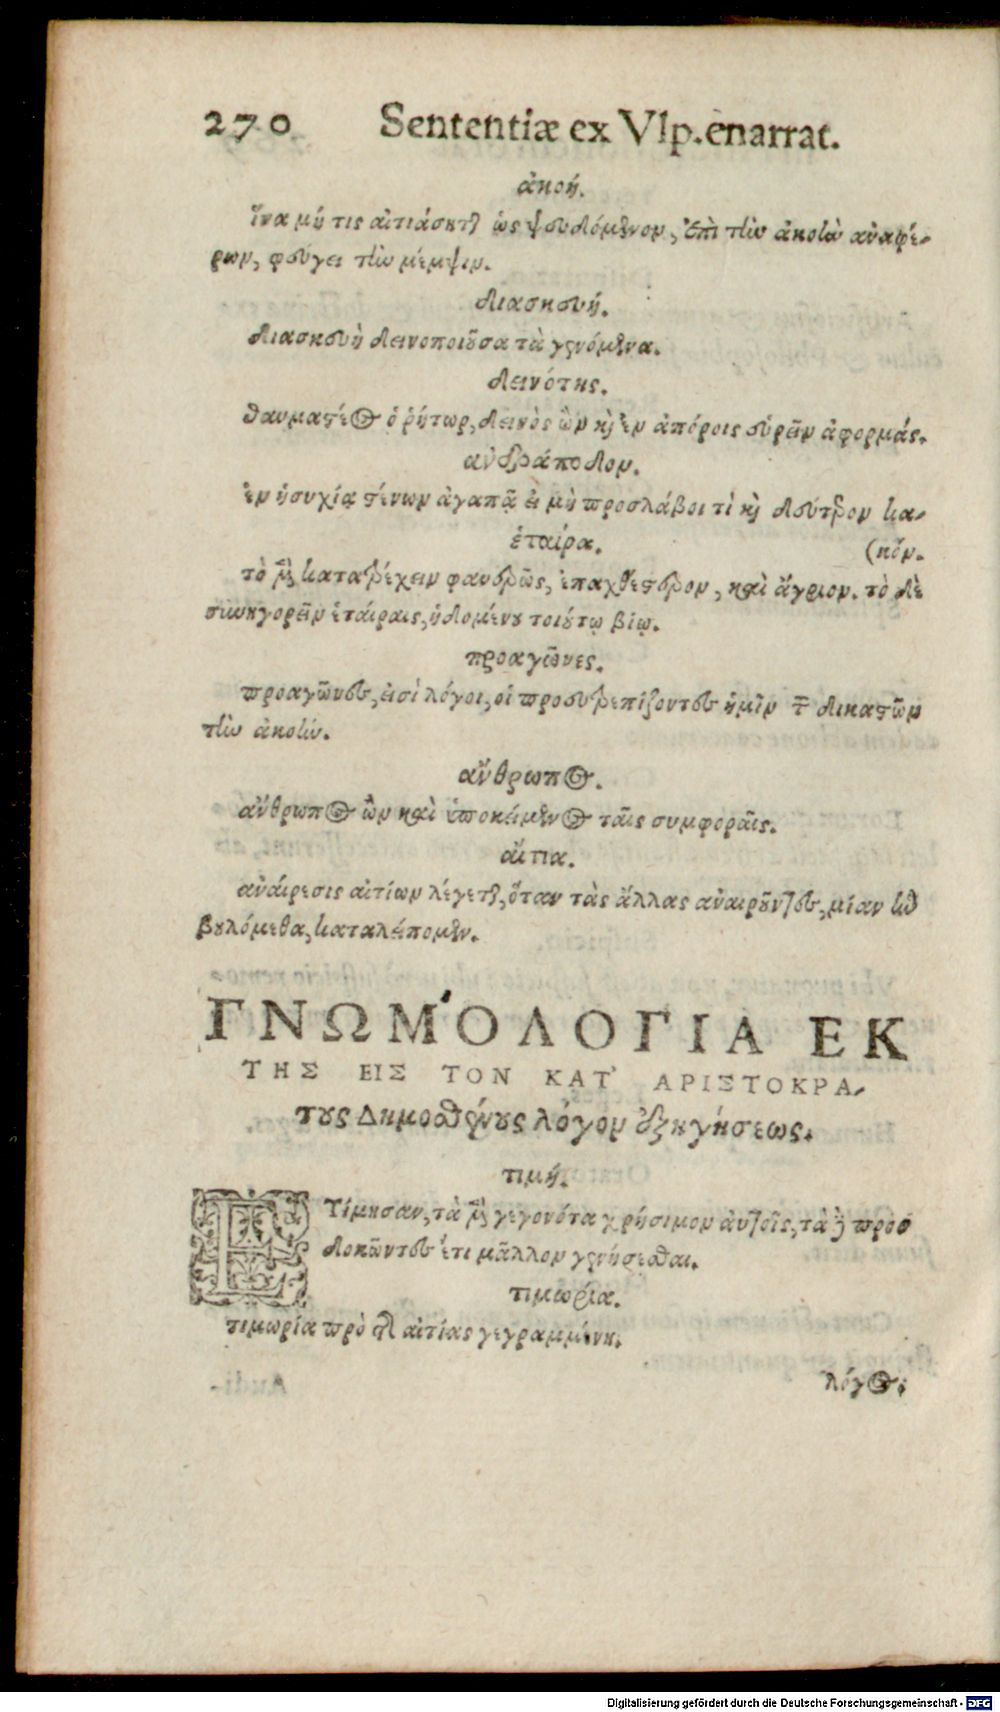 270 Sententiæ ex Vlp. enarrat.
ἀκοή.
ἵνα μή τις αἰτιάσηται ὡς ψευδόμενον, ἐπὶ τὴν ἀκοὴν ἀναφέ-
ρων, φεύγει τὴν μέμψιν.
διασκευή.
διασκευὴ δεινοποιοῦσα τὰ γενόμενα.
δεινότης.
θαυμαστέος ὁ ῥήτωρ, δεινὸς ὢν καὶ ἐν ἀπόροις εὑρεῖν ἀφορμάς.
ἀνδράποδον.
ἐν ἡσυχίᾳ στένων ἀγαπᾷ εἰ μὴ προσλάβοι τὶ καὶ δεύτερον κα-
ἑταίρα. (κόν.
τὸ μὲν κατατρέχειν φανερῶς, ἐπαχθέστερον, καὶ ἄγριον. τὸ δὲ
συνηγορεῖν ἑταίραις, ἡδομένου τοιούτῳ βίῳ.
προαγῶνες.
προαγῶνες, εἰσὶ λόγοι, οἱ προευτρεπίζοντες ἡμῖν τῶν δικαστῶν
τὴν ἀκοήν.
ἄνθρωπος.
ἄνθρωπος ὢν καὶ ὑποκείμενος ταῖς συμφοραῖς.
αἴτια.
ἀναίρεσις αἰτίων λέγεται, ὅταν τὰς ἄλλας ἀναιροῦντες, μίαν ἣν
βουλόμεθα, καταλείπομεν.
ΓΝΩΜΟΛΟΓΙΑ ΕΚ
ΤΗΣ ΕΙΣ ΤΟΝ ΚΑΤ' ΑΡΙΣΤΟΚΡΑ-
τους Δημοσθένους λόγον ἐξηγήσεως.
τιμή.
ΕΤίμησαν, τὰ μὲν γεγονότα χρήσιμον αὐτοῖς, τὰ δὲ προσ
δοκῶντες ἔτι μᾶλλον γενήσεσθαι.
τιμωρία.
τιμωρία πρὸ τῆς αἰτίας γεγραμμένη.
λόγος.
Digitalisierung gefördert durch die Deutsche Forschungsgemeinschaft - DFG